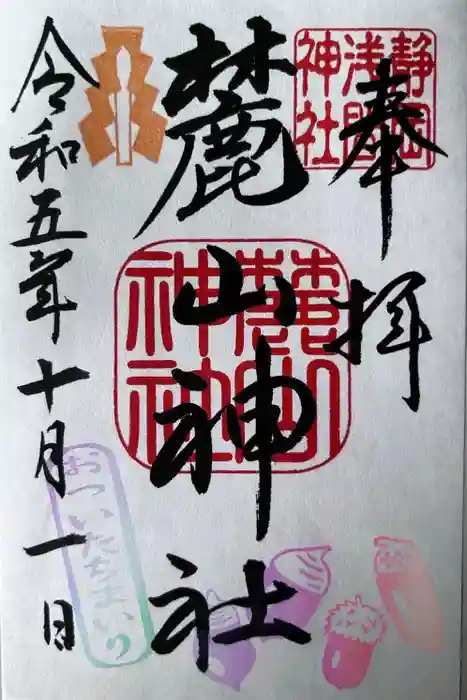 奉拝
静岡
浅間
神社
麓山神社
麓山
神社
令和五年十月一日
おついたちまいり